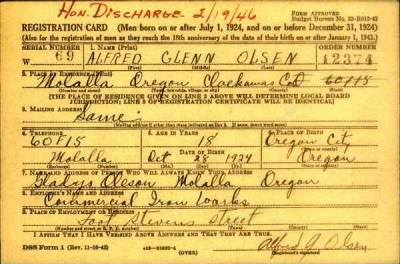 Hon. Discharge 2/19/46
Form Approved
Budget Bureau No. 33-R012-42
REGISTRATION CARD (Men born on or after July 1, 1924, and on or before December 31, 1924)
(Also for the registration of men as they reach the 18th anniversary of the date of their birth on or after January 1, 1943.)
SERIAL NUMBER 1. NAME (Print) ORDER NUMBER
W 69 ALFRED GLENN OLSEN 12374
(First) (Middle) (Last)
2. PLACE OF RESIDENCE (Print)
Molalla Oregon Clackamas Co 60F15
[THE PLACE OF RESIDENCE GIVEN ON LINE 2 ABOVE WILL DETERMINE LOCAL BOARD
JURISDICTION; LINE 2 OF REGISTRATION CERTIFICATE WILL BE IDENTICAL]
3. MAILING ADDRESS
Same
[Mailing address if other than place indicated on line 2. If same, insert word same]
4. TELEPHONE 5. AGE IN YEARS 6. PLACE OF BIRTH
60F15 18 Oregon City
DATE OF BIRTH
Molalla Oct 28 1924 Oregon
7. NAME AND ADDRESS OF PERSON WHO WILL ALWAYS KNOW YOUR ADDRESS
Gladys Olsen Molalla Oregon
8. EMPLOYER'S NAME AND ADDRESS
Commercial Iron Works
9. PLACE OF EMPLOYMENT OR BUSINESS
Foot Stevens Street
I AFFIRM THAT I HAVE VERIFIED ABOVE ANSWERS AND THAT THEY ARE TRUE.
DSS Form 1 (Rev. 11-16-42) (OVER) Alfred G. Olsen